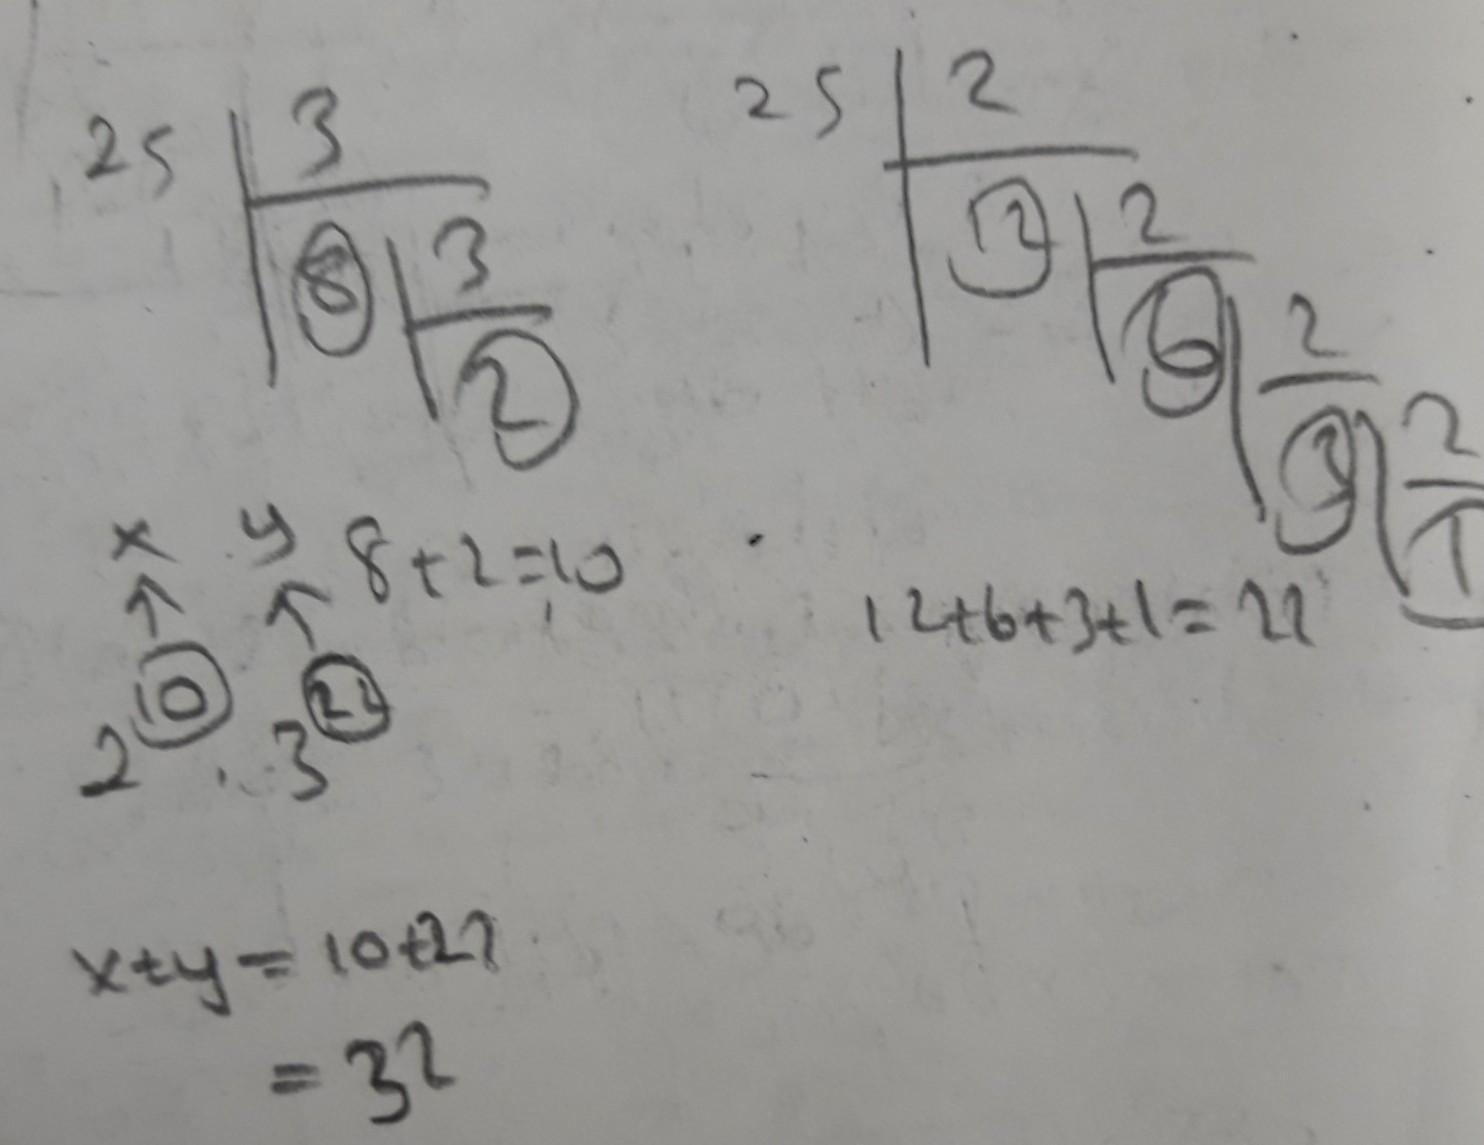 25 | 3
8 | 3
2
25 | 2
12 | 2
6 | 2
3 | 2
1
x y 8+2=10
12+6+3+1=22
2^10 . 3^22
x+y=10+22
=32